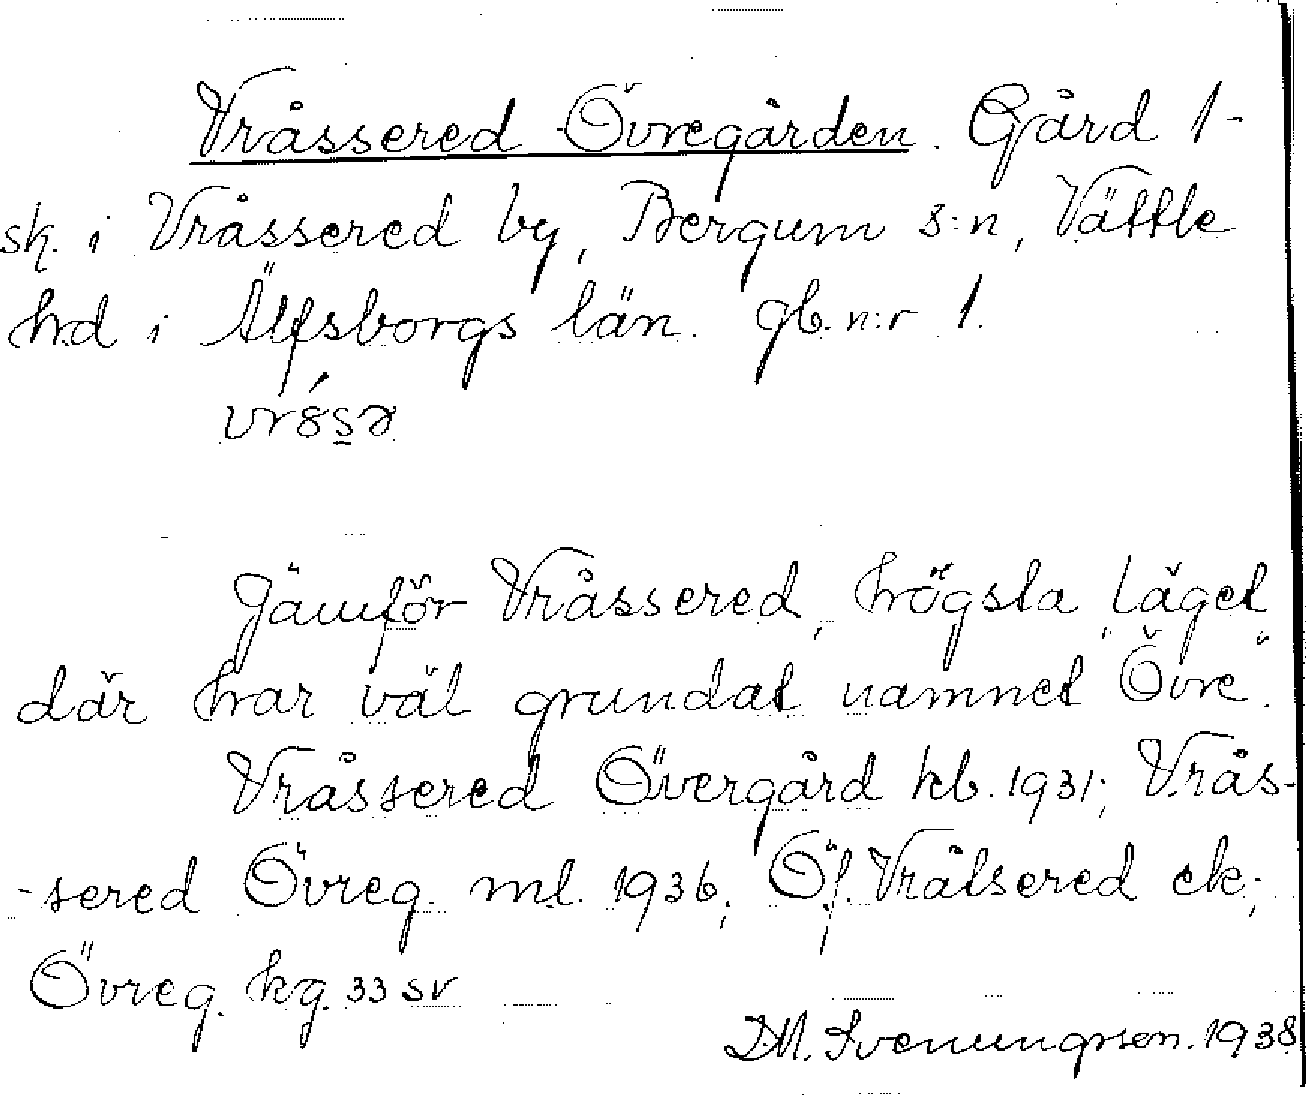 Vråssered Övregården. Gård 1-
sk. i Vråssered by, Bergum s:n, Vättle
hd i Älfsborgs län. gb. n:r 1.
Jämför Vråssered, högsta läget
där har väl grundat namnet "Övre".
Vråssered Övergård kb. 1931; Vrås-
-sered Övreg. ml. 1936; Öf. Vrålsered ek.;
Övreg. kg. 33 sv
D.M. Svenungsson. 1938